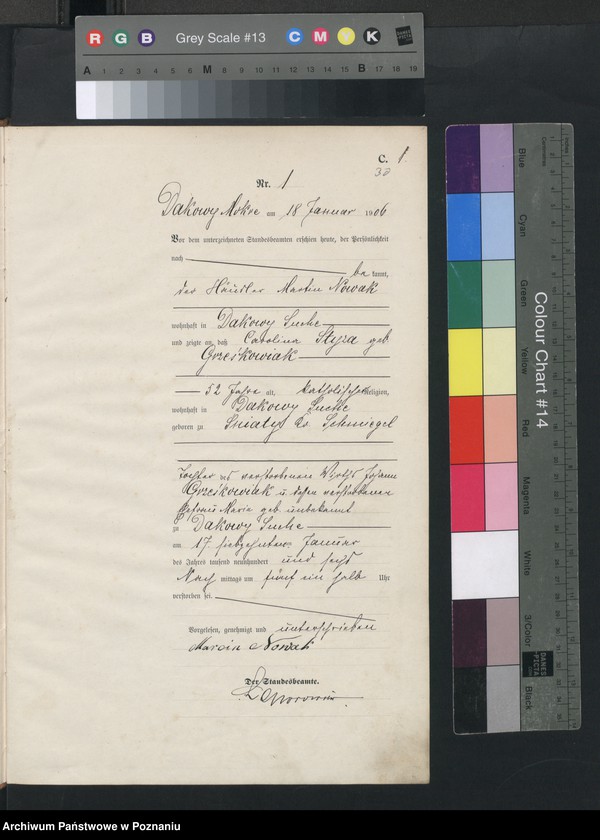 R G B Grey Scale #13 C M Y K
A 1 2 3 4 5 6 M 8 9 10 11 12 13 14 15 B 17 18 19
C. 1
38
Nr. 1
Dakowy Mokre am 18 Januar 1906
Vor dem unterzeichneten Standesbeamten erschien heute, der Persönlichkeit
nach
be kannt,
der Häusler Martin Nowak
wohnhaft in Dakowy Suche
und zeigte an, daß Carolina Skyra geb
Grześkowiak
52 Jahre alt, katholischer Religion,
wohnhaft in Dakowy Suche
geboren zu Sniaty Kr. Schmiegel
Tochter des verstorbenen Wirths Johann
Grześkowiak u. dessen verstorbenen
Ehefrau Marie geb. unbekannt
zu Dakowy Suche
am 17. siebzehnten Januar
des Jahres tausend neunhundert und sechs
Nach mittags um fünf ein halb Uhr
verstorben sei.
Vorgelesen, genehmigt und unterschrieben
Marcin Nowak
Der Standesbeamte.
Colour Chart #14
Blue
Cyan
Green
Yellow
Red
Magenta
White
3/Color
Black
Centimetres
Inches
DANES
PICTA
Archiwum Państwowe w Poznaniu